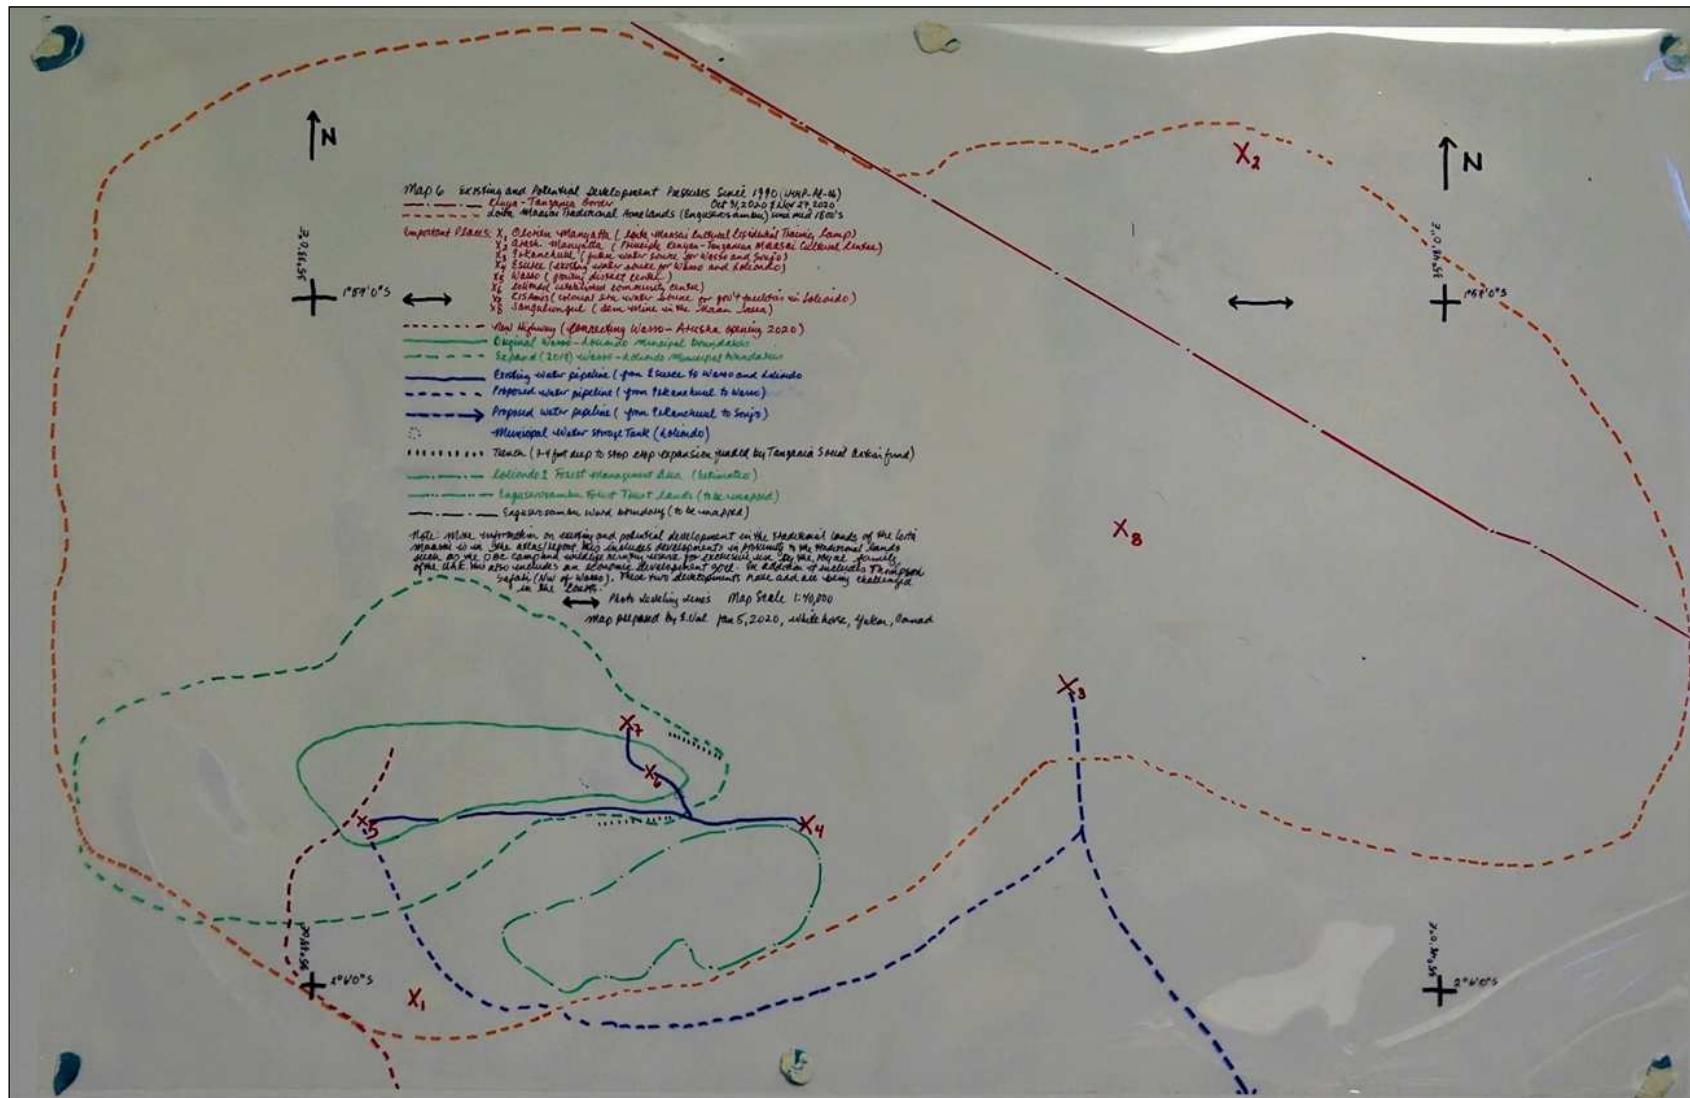 N
N
Map 6 Existing and Potential Development Pressures Since 1990 (LMHP-AE-06)
Kenya-Tanzania Border Oct 31, 2020 & Nov 27, 2020
Loita Maasai Traditional Homelands (Enguserosambu) since mid 1800's
Important Places: X1 Oloirien Manyatta (Loita Maasai Cultural Residential Training Camp)
X2 Arash Manyatta (Principle Kenyan-Tanzanian Maasai Cultural Centre)
X3 (future water source for Wasso and Sonjo)
X4 Esuree (existing water source for Wasso and Loliondo)
X5 Wasso (growing district center)
X6 Loliondo established community centre)
X7 (colonial site water source for gov't facilities in Loliondo)
X8 Sangubungul (Gem Mine in the Maan area)
New Highway (connecting Wasso-Arusha opening 2020)
Original Wasso-Loliondo Municipal Boundaries
Expand (2018) Wasso-Loliondo Municipal Boundaries
Existing water pipeline (from Esuree to Wasso and Loliondo
Proposed water pipeline (from to Wasso)
Proposed water pipeline (from to Sonjo)
Municipal Water Storage Tank (Loliondo)
Trench (2-4 feet deep to stop crop expansion funded by Tanzania Social Action fund)
Loliondo 1 Forest Management Area (Estimated)
Enguserosambu Forest Trust Lands (to be unmapped)
Enguserosambu Ward boundary (to be unmapped)
Note: More information on existing and potential development in the traditional lands of the Loita
Maasai is in the atlas/report this includes developments in proximity to the traditional lands
such as the OBC camp and wildlife hunting reserve for exclusive use by the Royal family
of the UAE this also includes an economic development zone. In addition it includes Thompson
Safari (NW of Wasso). These two developments have and are being challenged
in the courts.
Photo Leveling Lines Map Scale 1:40,000
Map prepared by Jan 5, 2020, Whitehorse, Yukon, Canada
1°59'0"S
1°59'0"S
X2
X8
X3
X7
X6
X5
X4
X1
2°6'0"S
2°6'0"S